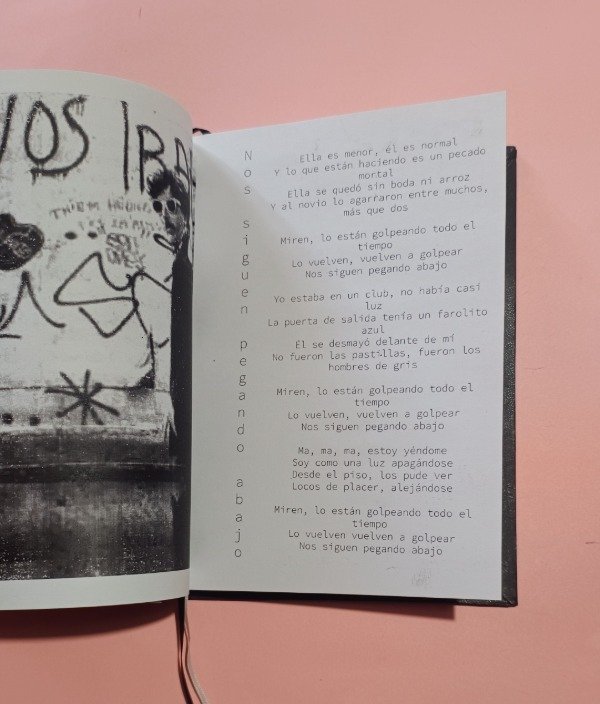 VOS IRA
TNIEM
Nos siguen pegando abajo
Ella es menor, él es normal
Y lo que están haciendo es un pecado
mortal
Ella se quedó sin boda ni arroz
Y al novio lo agarraron entre muchos,
más que dos
Miren, lo están golpeando todo el
tiempo
Lo vuelven, vuelven a golpear
Nos siguen pegando abajo
Yo estaba en un club, no había casi
luz
La puerta de salida tenía un farolito
azul
Él se desmayó delante de mí
No fueron las pastillas, fueron los
hombres de gris
Miren, lo están golpeando todo el
tiempo
Lo vuelven, vuelven a golpear
Nos siguen pegando abajo
Ma, ma, ma, estoy yéndome
Soy como una luz apagándose
Desde el piso, los pude ver
Locos de placer, alejándose
Miren, lo están golpeando todo el
tiempo
Lo vuelven vuelven a golpear
Nos siguen pegando abajo